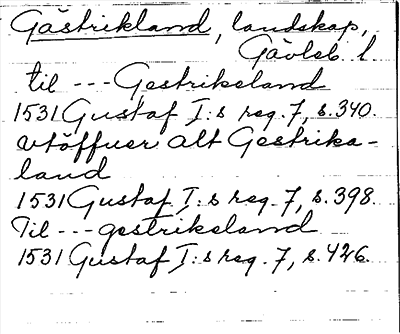 Gästrikland, landskap,
Gävleb. l
til --- Gestrikeland
1531 Gustaf I:s reg. 7, s. 340.
vtöffuer alt Gestrika-
land
1531 Gustaf I:s reg. 7, s. 398.
Til --- gestrikeland
1531 Gustaf I:s reg. 7, s. 426.